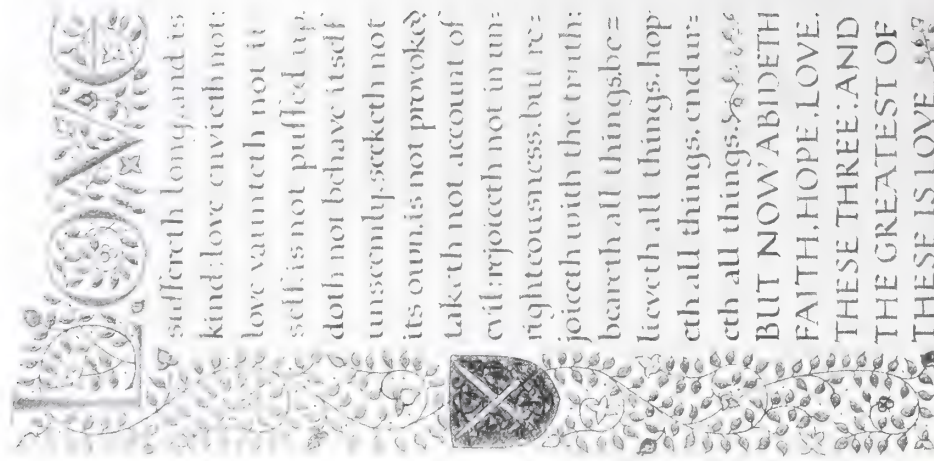 LOVE
suffereth long, and is
kind: love envieth not:
love vaunteth not it=
self is not puffed up,
doth not behave itself
unseemly, seeketh not
its own, is not provoked
taketh not account of
evil: rejoiceth not in un=
righteousness, but re=
joiceth with the truth:
beareth all things, be=
lieveth all things, hop
eth all things, endur=
eth all things.
BUT NOW ABIDETH
FAITH, HOPE, LOVE.
THESE THREE: AND
THE GREATEST OF
THESE IS LOVE